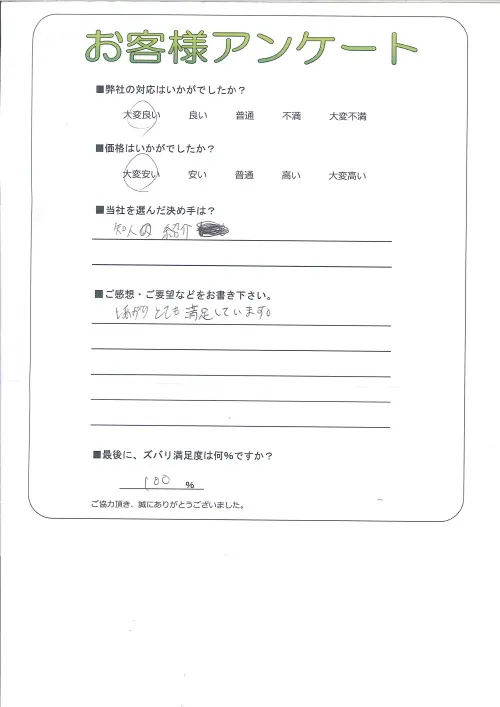 お客様アンケート
■弊社の対応はいかがでしたか？
大変良い 良い 普通 不満 大変不満
■価格はいかがでしたか？
大変安い 安い 普通 高い 大変高い
■当社を選んだ決め手は？
知人の 紹介
■ご感想・ご要望などをお書き下さい。
しあがり とても 満足しています。
■最後に、ズバリ満足度は何％ですか？
100 ％
ご協力頂き、誠にありがとうございました。